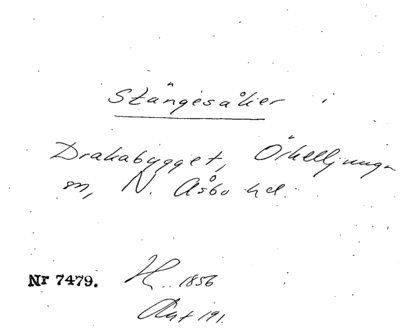 Stångesåkier
Drakabygget, Örkelljunga
sn, N. Åsbo hd.
Nr 7479. H. 1856
191.